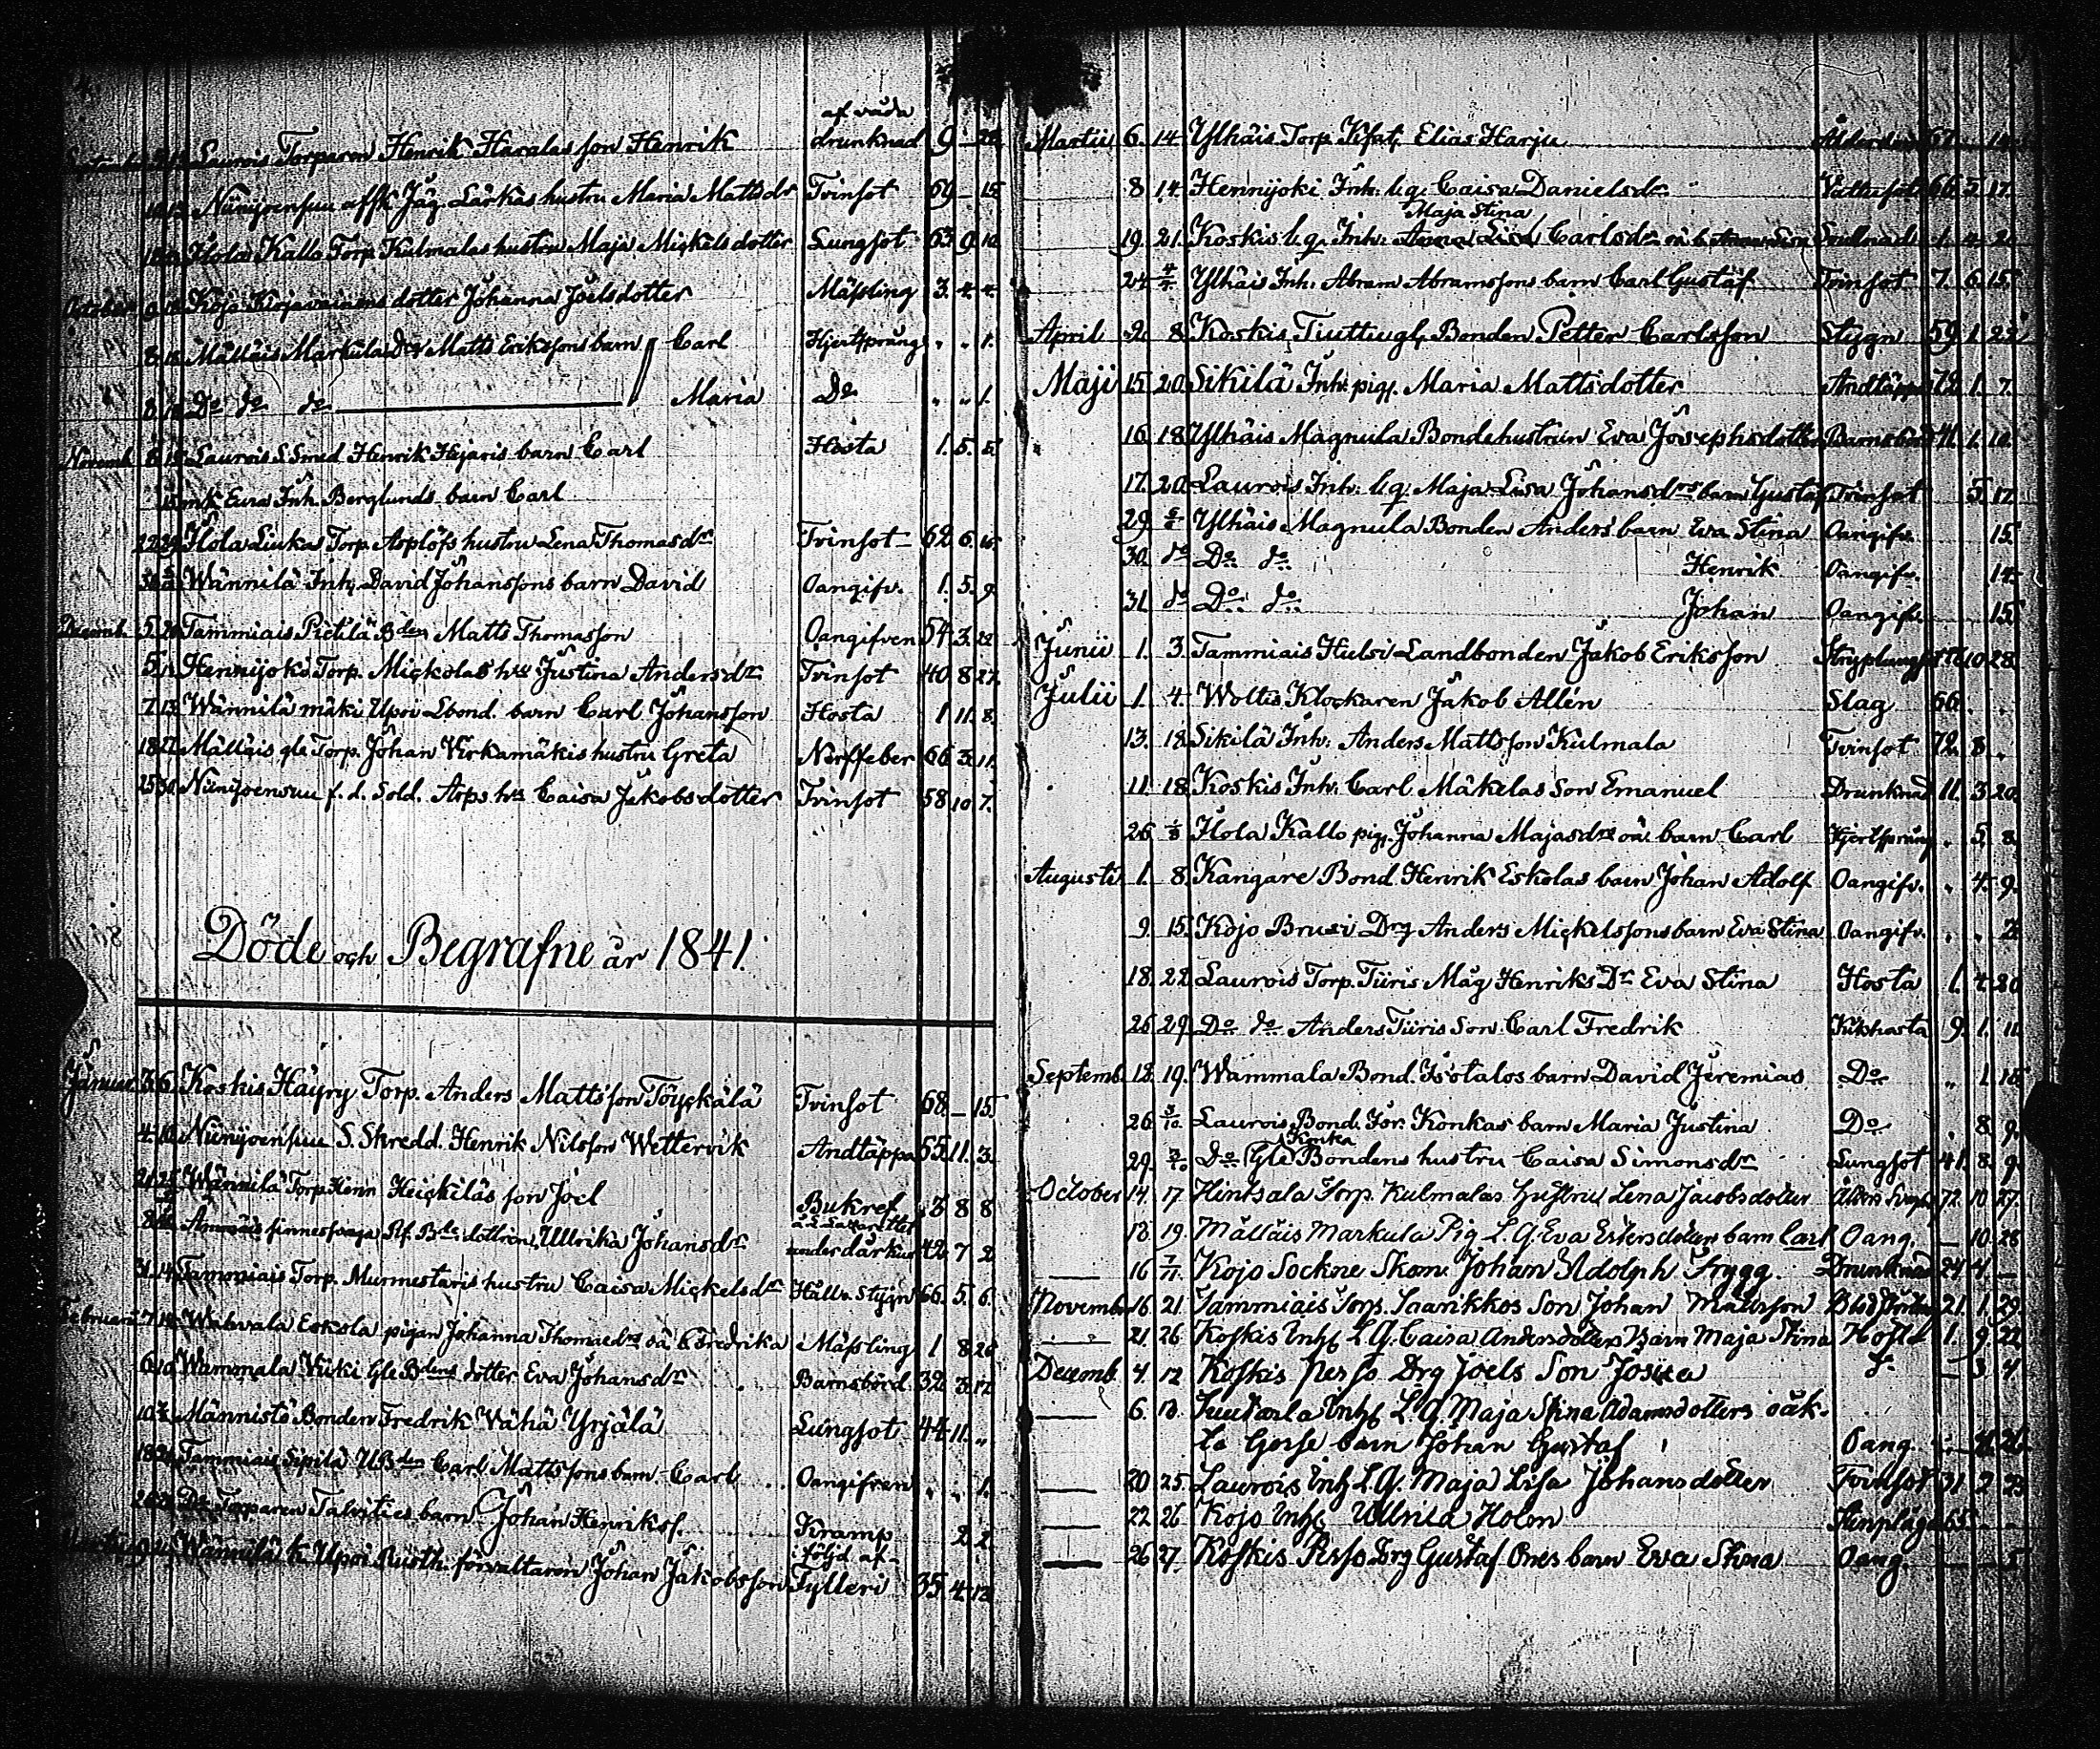 Laurois Torparen Henrik Haralas son Henrik af våda drunknad 9 –
Niinijoensuu Jäg. Lärkas hustru Maria Mattsdr Tvinsot 69 – 15
Kallo Torp. Kulmalas hustru Maja Mickelsdotter Lungsot 63 9
October Kojo dotter Johanna Joelsdotter Mässling 3. 4. 4.
8 Mälläis Markula Matts Erikssons barn Carl Hjertsprång „ „ 1.
8 Do do do Maria Do „ „ 1.
Novemb. 8 Laurois S. Smed Henrik barn Carl Hosta 1. 5. 5
Eura Inh. Berglunds barn Carl
Liuka Torp. Asplöfs hustru Lena Thomasdr Tvinsot 62 6.
Wännilä Inh. David Johanssons barn David Oangifv. 1. 5. 9.
Decemb. 5 Tammiais Pietilä Bden Matts Thomasson Oangifven 54 3. 22
5 Hennijoki Torp. Mickolas hu Justina Andersdr Tvinsot 40 8 27.
7. 13. Wännilä mäki Upoi Lbond. barn Carl Johansson Hosta 1 11. 8.
18 Mälläis gle Torp. Johan Virkamäkis hustru Greta Nerffeber 66 3. 11.
25 30 Niinijoensuu f. d. Sold. Arps hu Caisa Jakobsdotter Tvinsot 58 10 7.
Döde och Begrafne år 1841.
Januari 3. 6. Koskis Häyry Torp. Anders Mattsson Töyckälä Tvinsot 68 – 15
4. 10. Niinijoensuu S. Skredd. Henrik Nilsson Wettervik Andtäppa 55. 11. 3.
21. 25. Wännilä Torp Henr Heickiläs son Joel Bukref 3 8 8
dottren Ullrika Johansdr 42 7 2
31. 14. Tammiais Torp. Murmestaris hustru Caisa Mickelsdr Håll o. Stygn 66. 5. 6.
Februarii 7. Eskola pigan Johanna Thomaedrs oä. b. Fredrika Mässling 1 8 26
6. Wammala Gle Bdens dotter Eva Johansdr Barnsbörd 32 3. 12
Männistö Bonden Fredrik Vähä Yrjälä Lungsot 44 11. „
Tammiais Sipilä Bden Carl Mattssons barn Carl Oangifven „ „ 1.
Do Torparen Talvities barn Johan Henrikss. Kramp 2 2.
Wännilä k. Upoi Rusth. förvaltaren Johan Jakobsson i följd af Fylleri 35. 4. 12
Martii 6. 14. Ylhäis Torp. Elias Harju
8 14. Hennijoki Inh. l. q. Caisa Danielsdr Vattusot 66 5. 17.
Maja Stina
19. 21. Koskis l. q. Inh. Anna Lisa Carlsdr oä. b. 1. 4. 20
24 4/4 Ylhäis Inh. Abram Abramssons barn Carl Gustaf Tvinsot 7. 6. 15.
April 2. 8. Koskis Tiuttu gl. Bonden Petter Carlsson Stygn 59. 1. 22
Maji 15 20. Sikilä Inh. pig. Maria Mattsdotter Andtäppa 72. 1. 7.
16. 18. Ylhäis Magnula Bondehustrun Eva Josephsdotter Barnsbörd 41. 1. 10.
17. 20. Laurois Inh. l. q. Maja Lisa Johansdrs barn Gustaf Tvinsot 5. 12
29. 6/6 Ylhäis Magnula Bonden Anders barn Eva Stina Oangifv. 15.
30. do Do do Henrik Oangifv. 14.
31. do Do do Johan Oangifv. 15.
Junii 1. 3. Tammiais Hulsi Landbonden Jakob Eriksson 10. 28.
Julii 1. 4. Woltis Klockaren Jakob Allén Slag 66. . .
13. 18. Sikilä Inh. Anders Mattsson Kulmala Tvinsot 72. 8. „
11. 18. Koskis Inh. Carl Mäkelas Son Emanuel Drunknad 11. 3. 20.
26. Kallo pig. Johanna Majasdrs oä. barn Carl Hjertsprång . 5. 8.
Augusti 1. 8. Kangare Bond. Henrik Eskolas barn Johan Adolf Oangifv. „ 4. 9.
9. 15. Kojo Brusi Drg Anders Mickelssons barn Eva Stina Oangifv. . . 2.
18. 22. Laurois Torp. Tiiris Måg Henriks Dr Eva Stina Hosta 1. 4. 20
26 29. Do do Anders Tiiris Son Carl Fredrik Kikhosta 9. 1. 11.
Septemb. 12. 19. Wammala Bond. Isotalos barn David Jeremias Do „ 1. 18.
26 3/10. Laurois Bond. Isr. Konkas barn Maria Justina Do . 8 9.
Konka
29. 3/10. Do Gle Bondens hustru Caisa Simonsdr Lungsot 41. 8. 9.
October 14. 17. Hintsala Torp. Kulmalas Hustru Lena Jacobsdotter 72. 10 27.
18. 19. Mälläis Markula Pig. L. Q. Eva Estersdotters barn Carl Oang. – 10. 28
16 7/11. Kojo Sockne Skom. Johan Adolph Frygg Drunknad 24. 4. –
November 16. 21. Tammiais Torp. Saarikkos Son Johan Mattsson 21. 1. 29.
21. 26. Koskis Inh. L. Q. Caisa Andersdotters Barn Maja Stina Hosta 1. 9. 22
Decemb. 4. 12 Koskis Perso Drg Joels Son Josua – 3 4
6. 13. Inh. L. Q. Maja Stina Adamsdotters oäk-
ta Gosse barn Johan Gustaf Oang.
20 25. Laurois Inh. L. Q. Maja Lisa Johansdotter Tvinsot 31 2 23
22 26 Kojo Inh. Ullrica Holm Stenplåga 65. – –
26 27. Koskis Perso Drg Gustaf barn Eva Stina Oang.